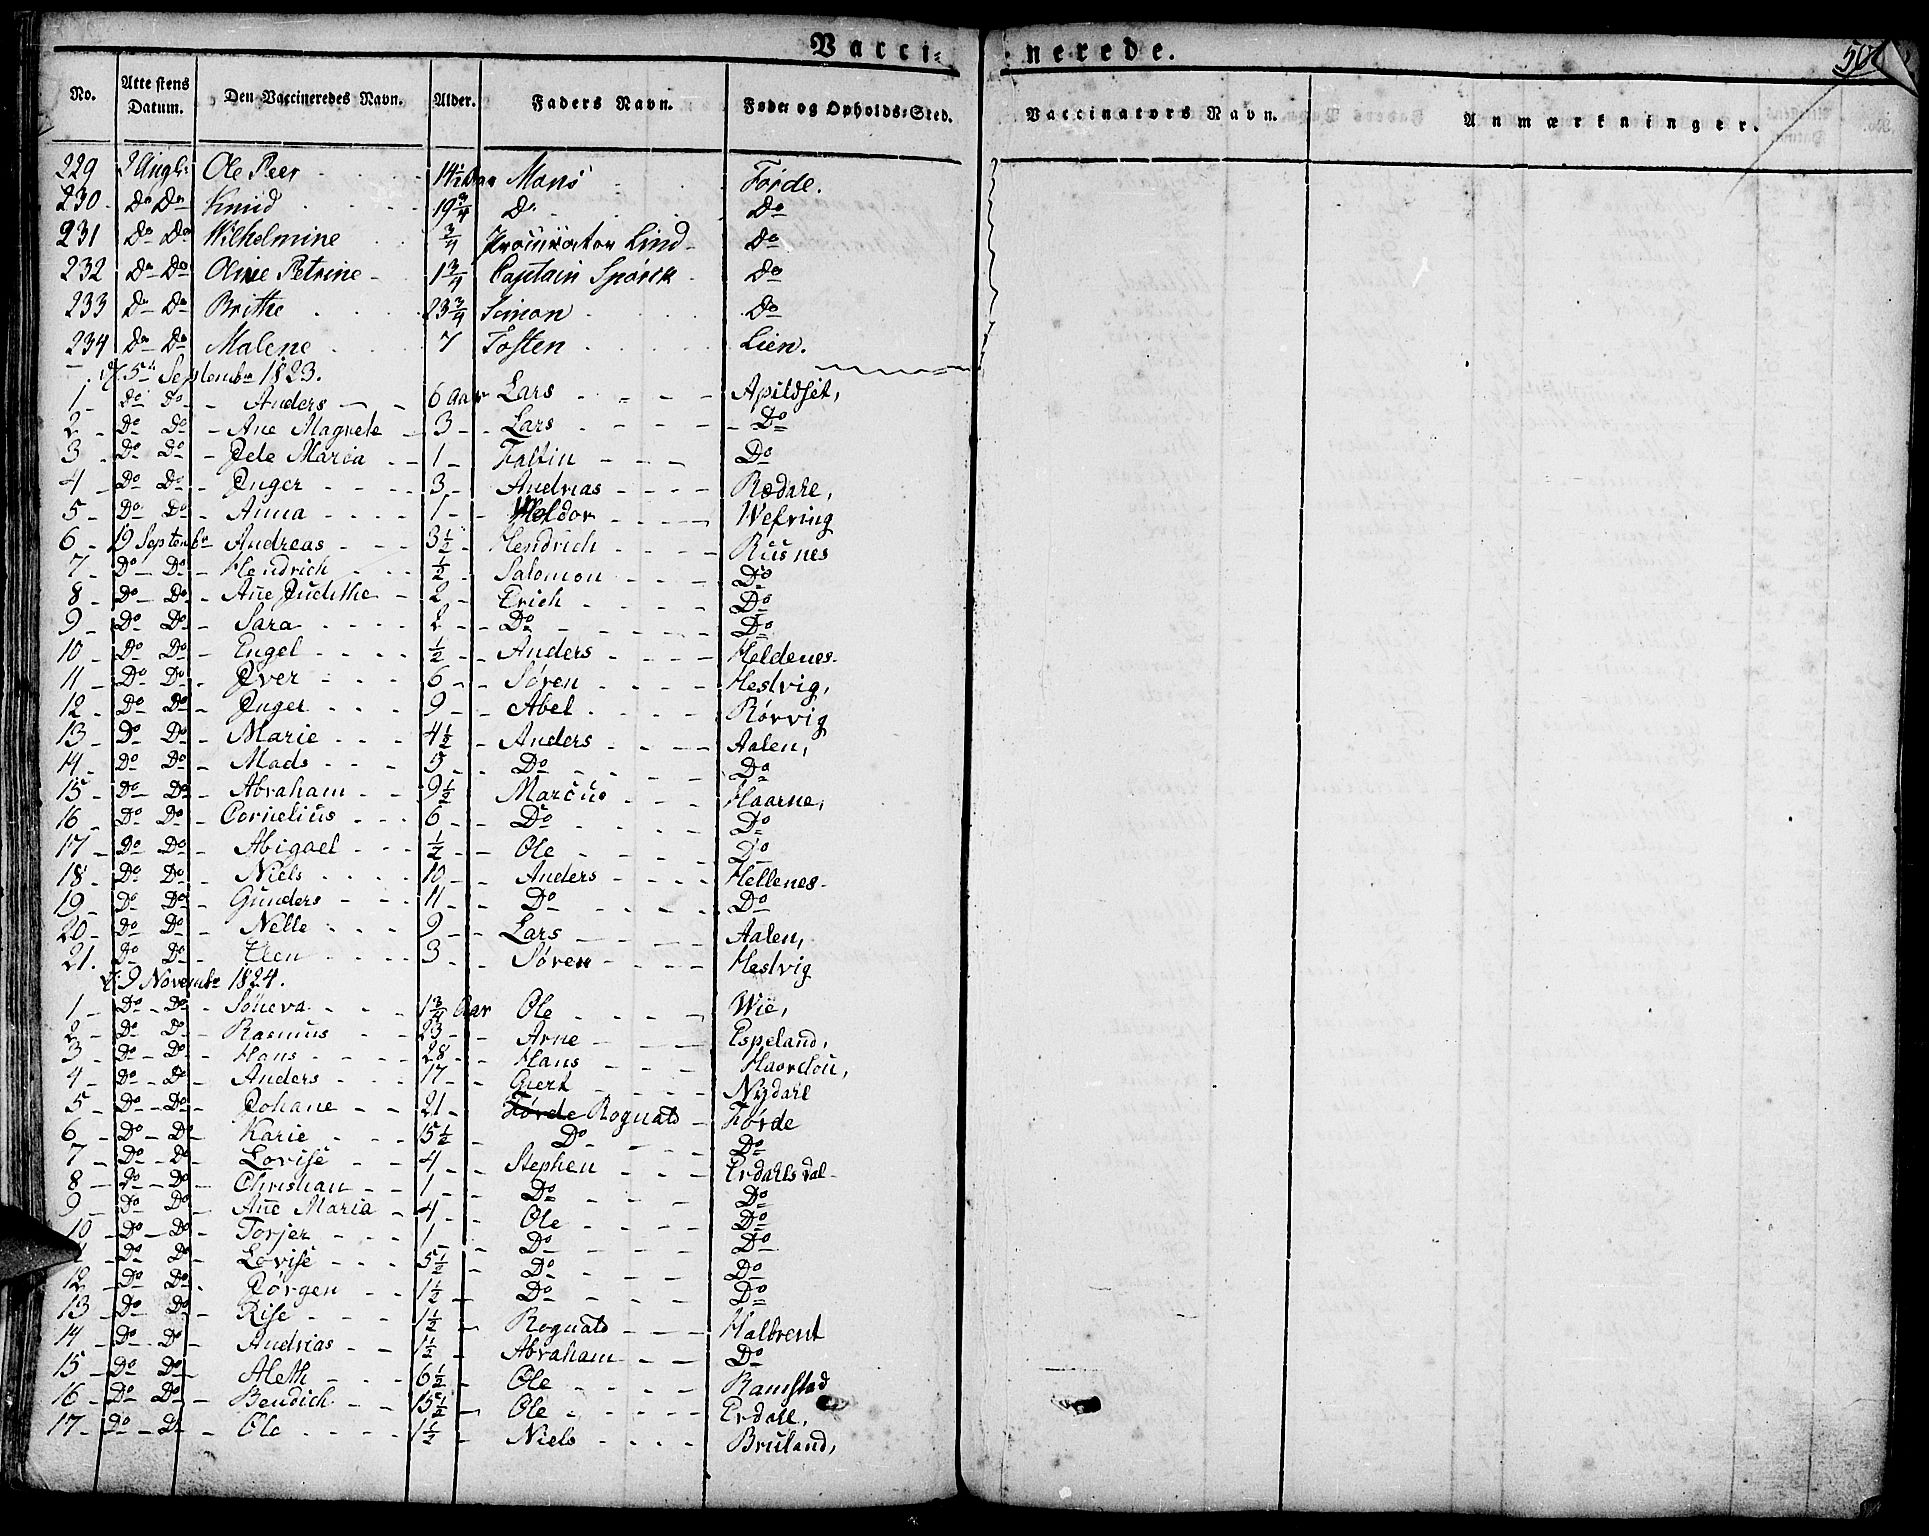 Vacci= nerede.
No. Attestens Datum. Den Vaccineredes Navn. Alder. Faders Navn. Føde og Opholds-Sted. Vaccinators Navn. Anmærkninger.
229 Ole Peer 14½ Aar Mons Førde.
230 Do Do Knud 19¾ Do Do
231 Do Do Wilhelmine ¾ Procurator Lind Do
232 Do Do Oline Petrine 1¾ Captain Do
233 Do Do Brithe 23¾ Simon Do
234 Do Do Malene 7 Tosten Lien.
5te Septembr 1823.
1 Do Do Anders 6 Aar Lars Apildset,
2 Do Do Ane Magrete 3 Lars Do
3 Do Do Maria 1 Do
4 Do Do Inger 3 Andrias Rødale,
5 Do Do Anna 1 Wefring
6 19 Septembr Andreas 3½ Hendrich Rusnes
7 Do Do Hendrich ½ Salomon Do
8 Do Do Ane Judithe 2 Erich Do
9 Do Do Sara 2 Do Do
10 Do Do Engel ½ Anders Heldenes
11 Do Do Iver 6 Søren Hestvig,
12 Do Do Inger 9 Abel Rørvig
13 Do Do Marie 4½ Anders Aalen,
14 Do Do Mads 5 Do Do
15 Do Do Abraham 9½ Marcus Haarne,
16 Do Do Cornelius 6 Do Do
17 Do Do Abigael ½ Ole Do
18 Do Do Niels 10 Anders Hellenes
19 Do Do Gunders 11 Do Do
20 Do Do Nelle 9 Lars Aalen,
21. Do Do Elen 3 Søren Hestvig
d: 9 Novembr 1824.
1 Do Do Söneva 1¾ Aar Ole Wie,
2 Do Do Rasmus 23 Arne Espeland,
3 Do Do Hans 28 Hans
4 Do Do Anders 17 Giert Nydahl
5 Do Do Johane 21 Førde Rognald Førde
6 Do Do Karie 15½ Do Do
7 Do Do Lovise 4 Stephen Erdahlsdal
8 Do Do Christian 1 Do Do
9 Do Do Ane Maria 4 Ole Do
10 Do Do Torjer 1 Do Do
Do Do Lovise 5½ Do Do
12 Do Do Jørgen 1½ Do Do
13 Do Do Rise 1½ Rognald Halbrent
14 Do Do Andrias 1½ Abraham Do
15 Do Do Aleth 6½ Ole Ramstad
16 Do Do Bendich 15½ Ole Erdahl,
17 Do Do Ole 1½ Niels Bruland,